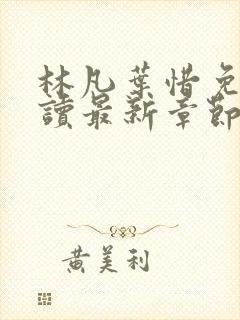 林凡葉惜免
讀最新章節
黃美利